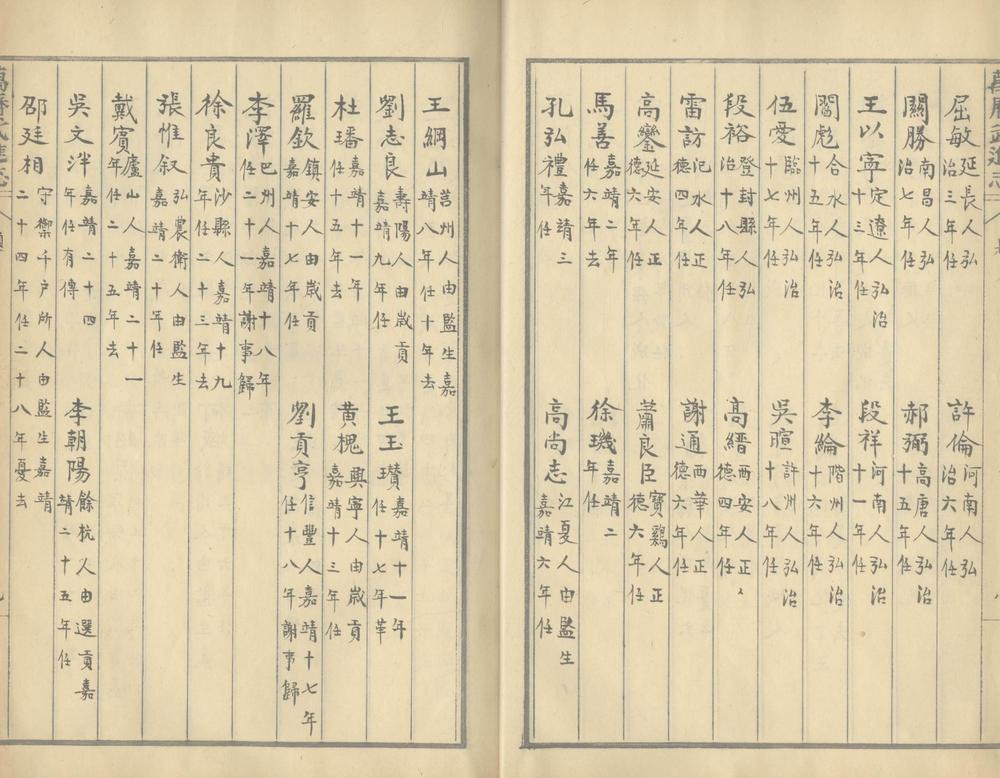 屈敏 延長人弘治三年任 許倫 河南人弘治六年任
關勝 南昌人弘治七年 郝弼 高唐人弘治十五年任
王以寧 定遼人弘治十三年任 段祥 河南人弘治十一年任
閻彪 合水人弘治十五年任 李綸 階州人弘治十六年任
伍愛 臨州人弘治十七年任 吳暄 許州人弘治十八年任
段裕 登封縣人弘治十八年任 高縉 西安人正德四年任
雷訪 汜水人正德四年任 謝通 西華人正德六年任
高鑾 延安人正德六年任 蕭良臣 寶鷄人正德六年任
馬善 嘉靖二年任六年去 徐璣 嘉靖二年任
孔弘禮 嘉靖三年任 高尚志 江夏人由監生嘉靖六年任
王綱山 莒州人由監生嘉靖八年任十年去
劉志良 壽陽人由歲貢嘉靖九年任 王玉瓚 嘉靖十一年任十七年革
杜璠 嘉靖十一年任十五年去 黄槐 興寧人由歲貢嘉靖十三年任
羅欽 鎮安人由歲貢嘉靖十七年任 劉貢亨 信豐人嘉靖十七年任十八年謝事歸
李澤 巴州人嘉靖十八年任二十一年謝事歸
徐良貴 沙縣人嘉靖十九年任二十三年去
張惟叙 弘農衛人由監生嘉靖二十年任
戴賓 廬山人嘉靖二十一年任二十五年去
吳文泮 嘉靖二十四年任有傳 李朝陽 餘杭人由選貢嘉靖二十五年任
邵廷相 守禦千户所人由監生嘉靖二十四年任二十八年憂去